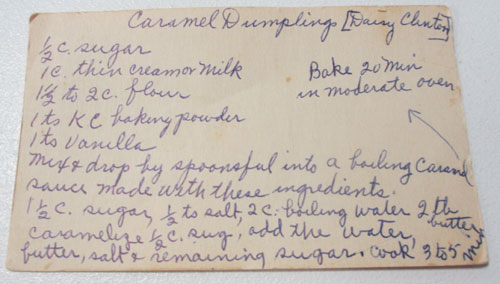 Caramel Dumplings [Daisy Clinton]
½ c. sugar
1 c. thin cream or milk
1½ to 2 c. flour
1 ts KC baking powder
1 ts Vanilla
Bake 20 min
in moderate oven
Mix & drop by spoonsful into a boiling Caramel
sauce made with these ingredients.
1½ c. sugar, ½ ts salt, 2 c. boiling water 2 tb butter
caramelize ½ c. sug, add the water,
butter, salt & remaining sugar. Cook 3 to 5 min.